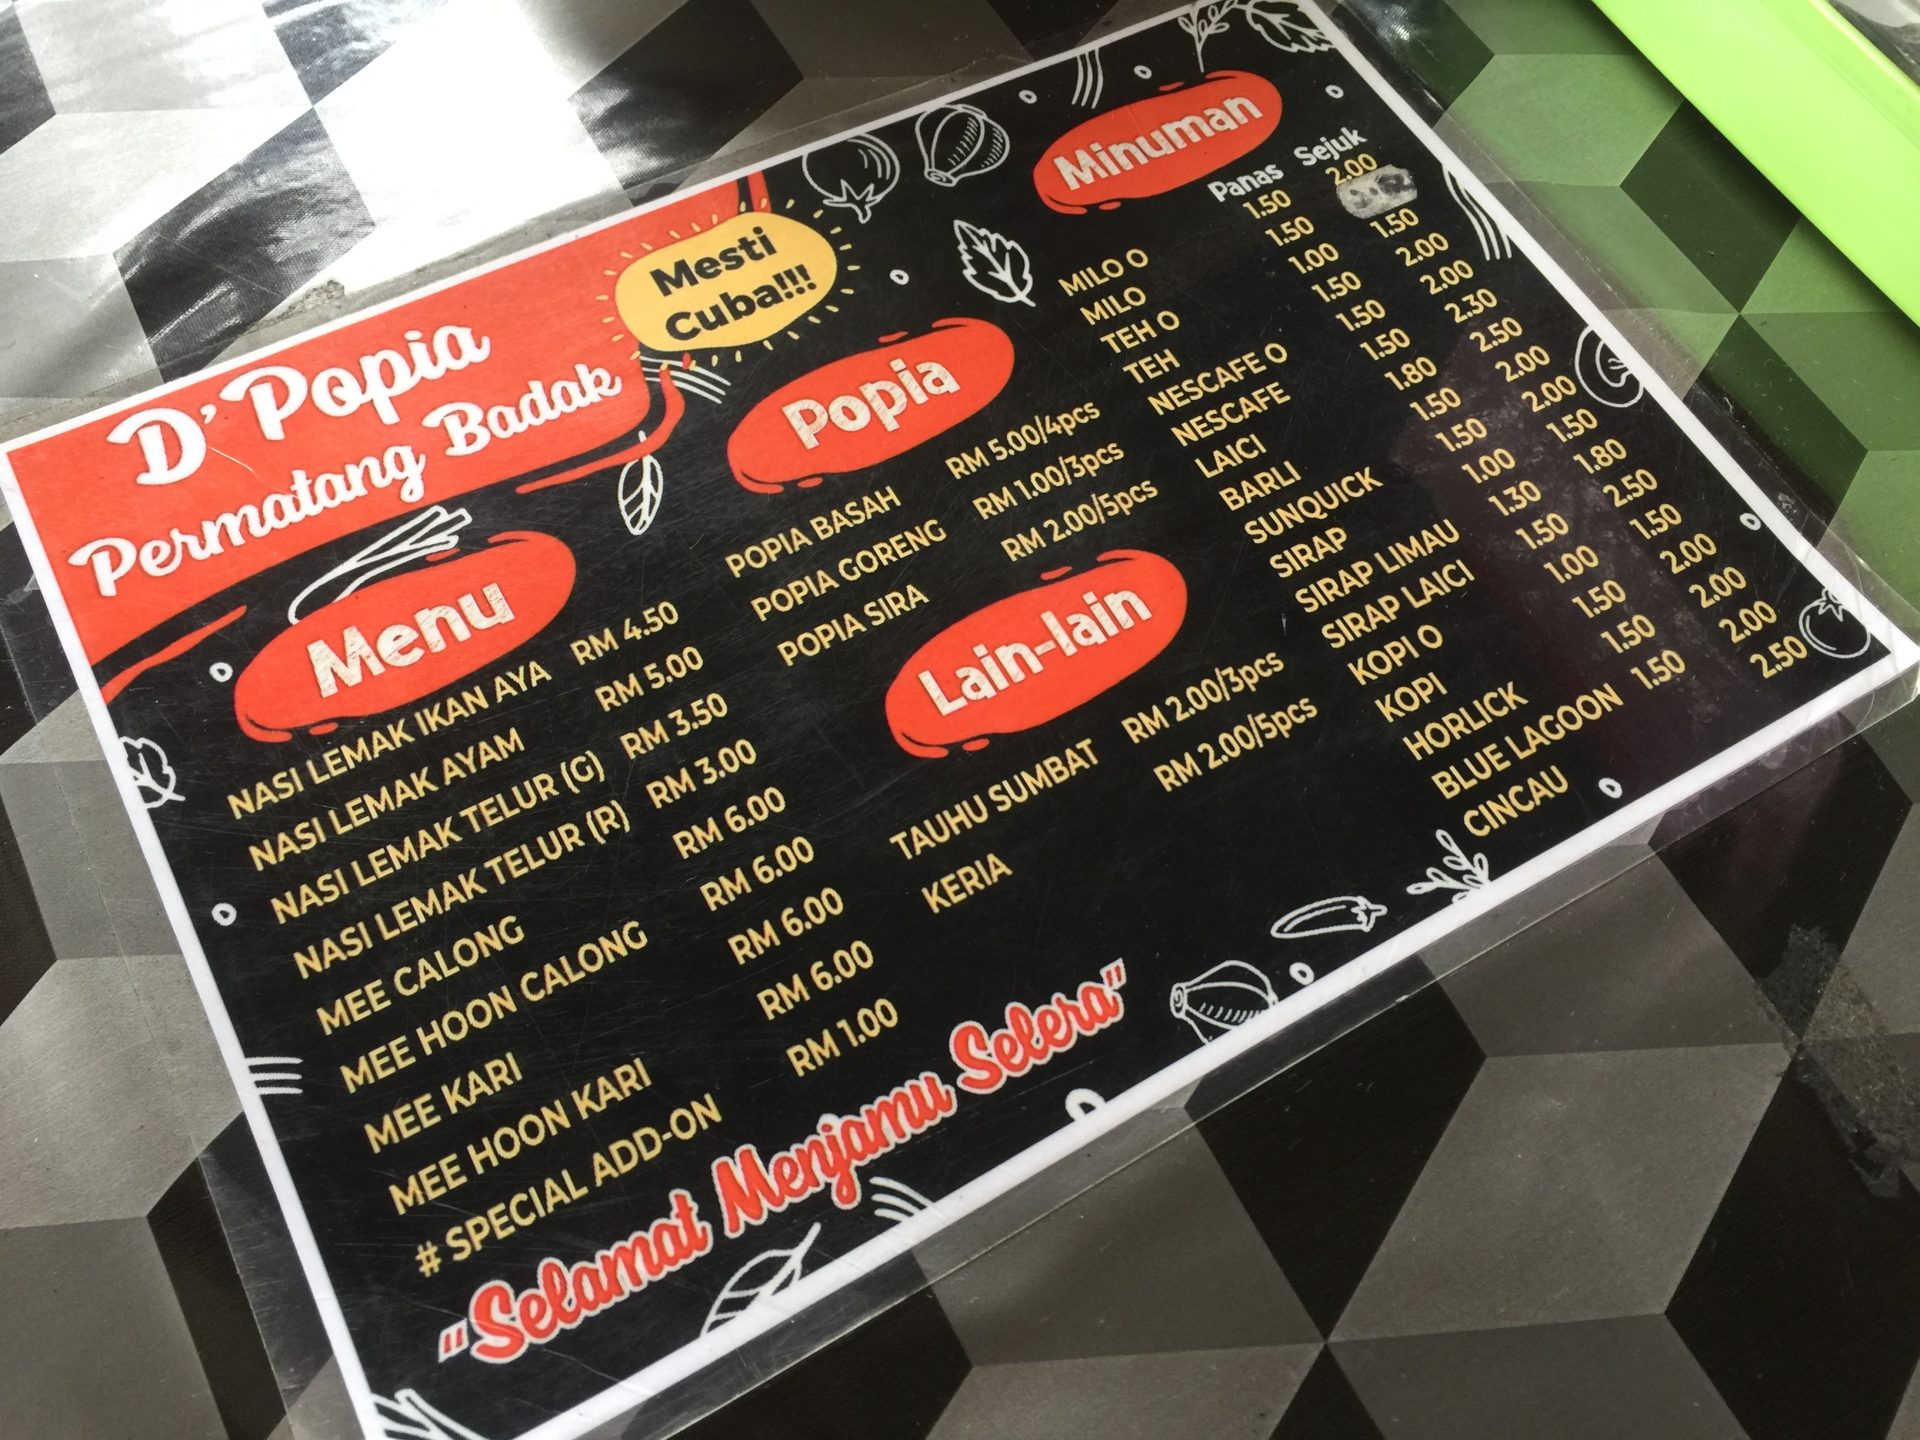 D' Popia
Permatang Badak
Mesti
Cuba!!!
Menu
NASI LEMAK IKAN AYA RM 4.50
NASI LEMAK AYAM RM 5.00
NASI LEMAK TELUR (G) RM 3.50
NASI LEMAK TELUR (R) RM 3.00
MEE CALONG RM 6.00
MEE HOON CALONG RM 6.00
MEE KARI RM 6.00
MEE HOON KARI RM 6.00
# SPECIAL ADD-ON RM 1.00
Popia
POPIA BASAH RM 5.00/4pcs
POPIA GORENG RM 1.00/3pcs
POPIA SIRA RM 2.00/5pcs
Lain-lain
TAUHU SUMBAT RM 2.00/3pcs
KERIA RM 2.00/5pcs
Minuman
Panas Sejuk
MILO O 1.50 2.00
MILO 1.50
TEH O 1.00 1.50
TEH 1.50 2.00
NESCAFE O 1.50 2.00
NESCAFE 1.50 2.30
LAICI 1.80 2.50
BARLI 1.50 2.00
SUNQUICK 1.50 2.00
SIRAP 1.00 1.50
SIRAP LIMAU 1.30 1.80
SIRAP LAICI 1.50 2.50
KOPI O 1.00 1.50
KOPI 1.50 2.00
HORLICK 1.50 2.00
BLUE LAGOON 1.50 2.00
CINCAU 2.50
"Selamat Menjamu Selera"